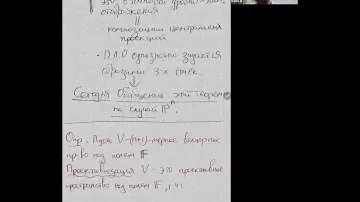 отображения
||
композиции центральных
проекций
• ДЛО однозначно задаётся
образами 3-х точек.
Сегодня Обобщение этих теорем
на случай ℙⁿ.
Опр. Пусть V – (n+1)-мерное векторное
пр-во над полем 𝔽
Проективизация V – это проективное
пространство над полем 𝔽,